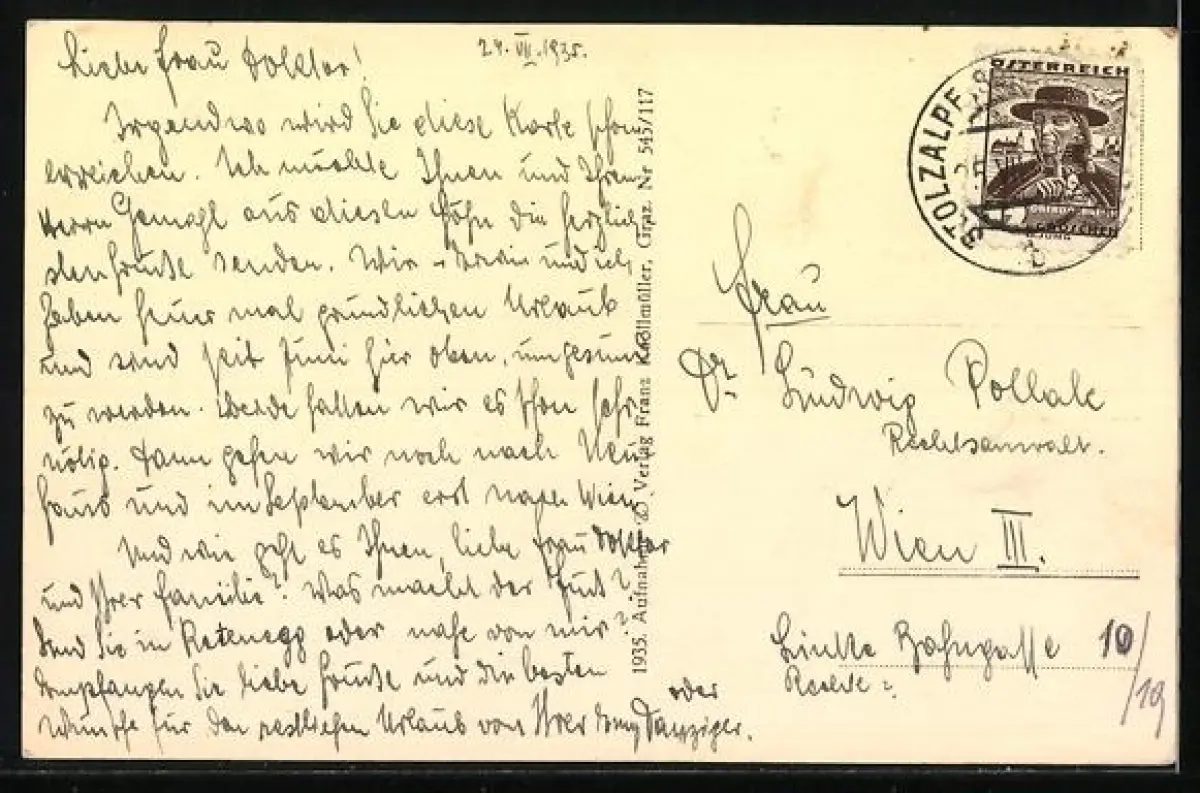 24. VII. 1935.
Liebe Frau Doktor!
Irgendwo wird Sie diese Karte schon
erreichen. Ich möchte Ihnen und Ihrem
Herrn Gemahl aus diesen Höhn die herzlich-
sten Grüße senden. Wir - und ich
haben heuer mal gründlichen Urlaub
und sind seit Juni hier oben, um gesund
zu werden. Beide hatten wir es schon sehr
nötig. Dann gehen wir noch nach Neu-
haus und im September erst nach Wien.
Und wie geht es Ihnen, liebe Frau Doktor
und Ihrer Familie? Was macht der
Sind Sie in Ratenegg oder nahe von mir?
Empfangen Sie liebe Grüße und die besten
Wünsche für den restlichen Urlaub von Ihrer Danziger.
1935. Aufnahme u. Verlag Franz Knollmüller, Graz. Nr 545/117
STOLZALPE
ÖSTERREICH
GROSCHEN
Frau
Dr. Ludwig Pollak
Rechtsanwalt.
Wien III.
Linke Bahngasse 10/19
oder
Rechte?